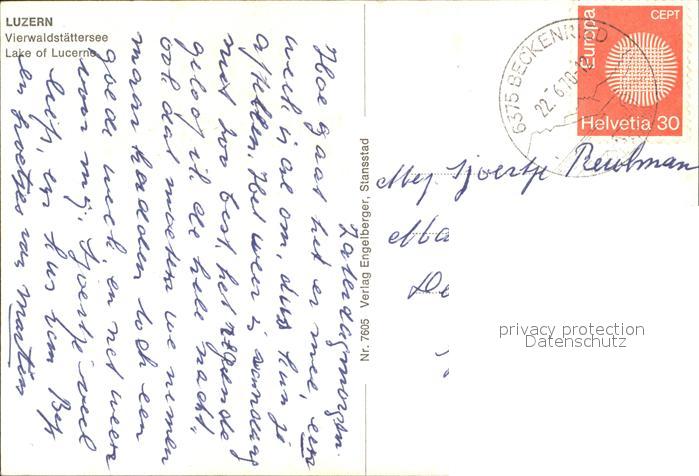 LUZERN
Vierwaldstättersee
Lake of Lucerne
Zaterdagmorgen.
Hoe gaat het er mee, een
week is al om, dus kun je
aftellen. Het weer is vandaag
niet zoo best, het regende
geloof ik de hele nacht,
ook dat moeten we nemen
maar hadden toch een
goede week, en het weer
voor mij. Sjoertje veel
liefs, en kus hem Bep
en groetjes van Martin
Nr. 7605 Verlag Engelberger, Stansstad
6375 BECKENRIED
22.6.70
Europa
CEPT
Helvetia 30
Mej. Sjoertje Reulman
Ma
De
privacy protection
Datenschutz